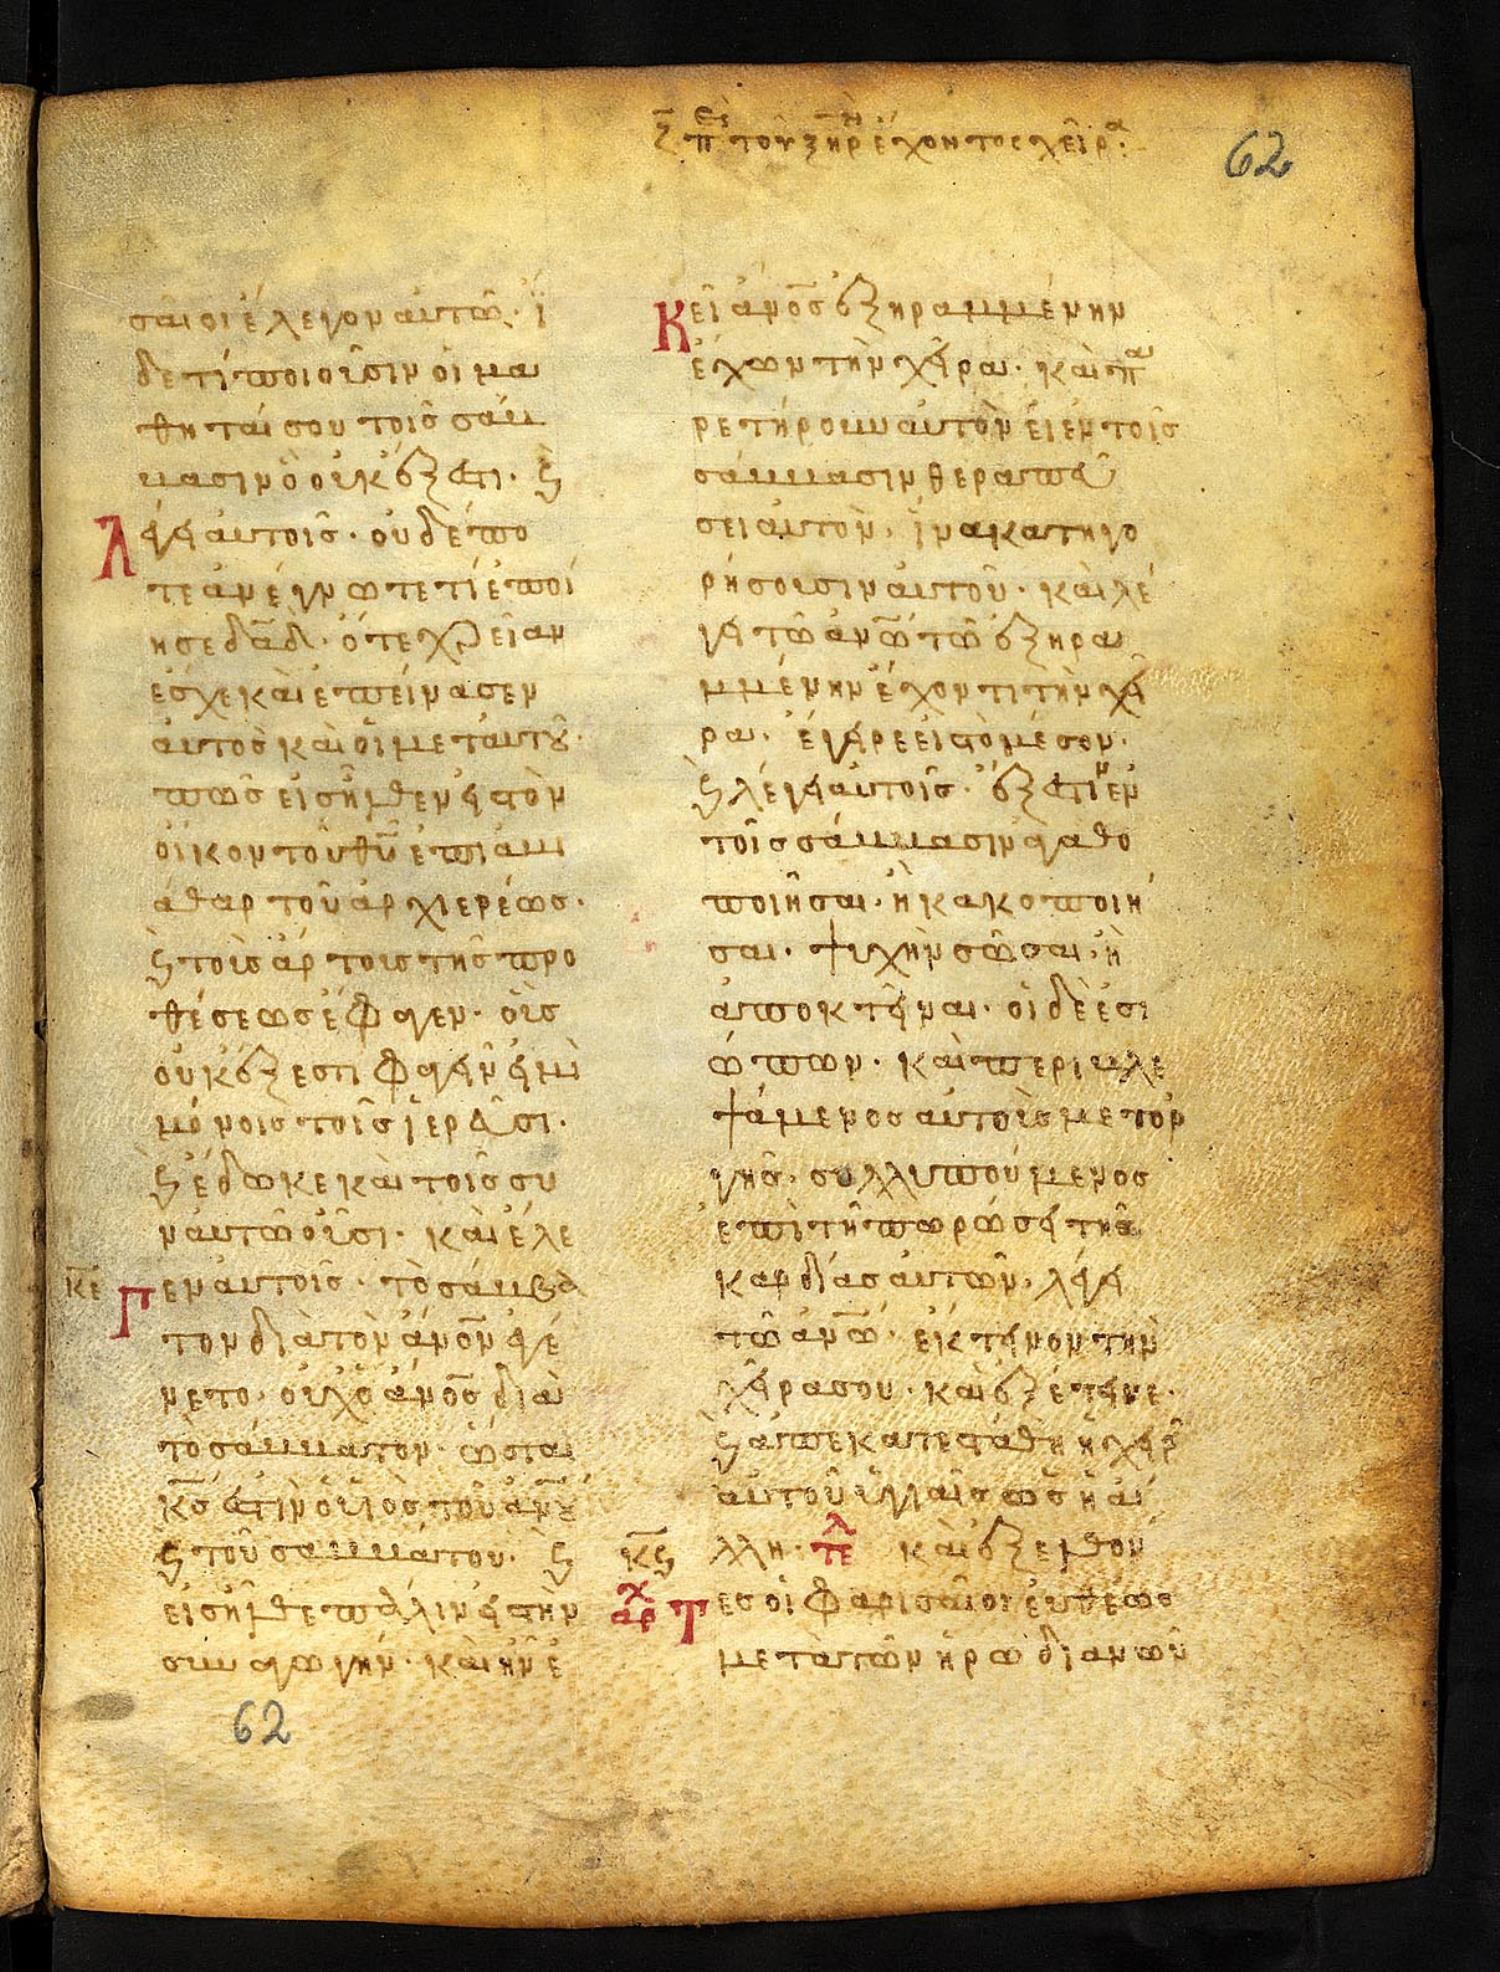 ζ πε τοῦ ξηρ ἔχοντος χεῖρα
62
σαῖοι ἔλεγον αὐτῶ· ἴ
δε τί ποιοῦσιν οἱ μα
θηταί σου τοῖς σάβ
βασιν ὃ οὐκ ἔξεστι· κὶ
λέγει αὐτοῖς· οὐδέπο
τε ἀνέγνωτε τί ἐποί
ησε δ̅α̅δ̅· ὅτε χρείαν
ἔσχε καὶ ἐπείνασεν
αὐτὸς καὶ οἱ μετ αὐτοῦ·
πῶς εἰσῆλθεν εἰς τὸν
οἶκον τοῦ θ̅υ̅ ἐπὶ ἀβι
άθαρ τοῦ ἀρχιερέως·
κὶ τοὺς ἄρτους τῆς προ
θέσεως ἔφαγεν· οὓς
οὐκ ἔξεστι φαγεῖν εἰ μὴ
μόνοις τοῖς ἱερεῦσι·
κὶ ἔδωκε καὶ τοῖς συ
ν αὐτῶ οὖσι· καὶ ἔλε
κε γεν αὐτοῖς· τὸ σάββα
τον διὰ τὸν ἄ̅ν̅ο̅ν̅ ἐγέ
νετο· οὐχ ὁ ἄ̅ν̅ο̅ς̅ διὰ
τὸ σάββατον· ὥστε
κ̅ς̅ ἐστιν ὁ υἱὸς τοῦ ἀ̅ν̅ο̅υ̅
κὶ τοῦ σαββάτου· κὶ
εἰσῆλθε πάλιν εἰς τὴν
συναγωγήν· καὶ ἦν ἐ
κεῖ ἄ̅ν̅ο̅ς̅ ἐξηραμμένην
ἔχων τὴν χεῖρα· καὶ πα
ρετήρουν αὐτὸν εἰ ἐν τοῖς
σάββασιν θεραπεύ
σει αὐτὸν· ἵνα κατηγο
ρήσουσιν αὐτοῦ· καὶ λέ
γει τῶ ἀ̅ν̅ω̅ τῶ ἐξηρα
μμένην ἔχοντι τὴν χεῖ
ρα· ἔγειρε εἰς τὸ μέσον·
κὶ λέγει αὐτοῖς· ἔξεστιν ἐν
τοῖς σάββασιν ἀγαθο
ποιῆσαι· ἢ κακοποιῆ
σαι· ψυχὴν σῶσαι· ἢ
ἀποκτεῖναι· οἱ δὲ ἐσι
ώπων· καὶ περιβλε
ψάμενος αὐτοὺς μετ ὀρ
γῆς· συλλυπούμενος
ἐπὶ τῆ πωρώσει τῆς
καρδίας αὐτῶν· λέγει
τῶ ἀ̅ν̅ω̅· ἔκτεινον τὴν
χεῖρα σου· καὶ ἐξέτεινε·
κὶ ἀπεκατεστάθη ἡ χεὶρ
αὐτοῦ ὑγιαὶς ὡς ἡ ἄ
κς λλη· τελ καὶ ἐξελθόν
αρχ τες οἱ φαρισαῖοι εὐθέως
μετὰ τῶν ἡρωδιανῶν
62